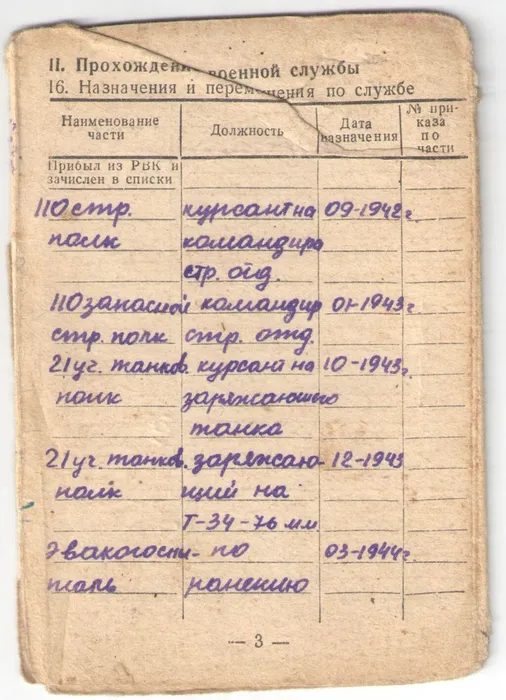 II. Прохождени военной службы
16. Назначения и перемещения по службе
Наименование части
Должность
Дата назначения
№ приказа по части
Прибыл из РВК и
зачислен в списки
110 стр. курсант на 09-1942г.
полк командира
стр. отд.
110 запасной командир 01-1943г.
стр. полк стр. отд.
21 уч. танков. курсант на 10-1943г.
полк заряжающего
танка
21 уч. танков. заряжаю- 12-1943
полк щий на
Т-34-76 мм.
Эвакогоспи- по 03-1944г.
таль ранению
— 3 —